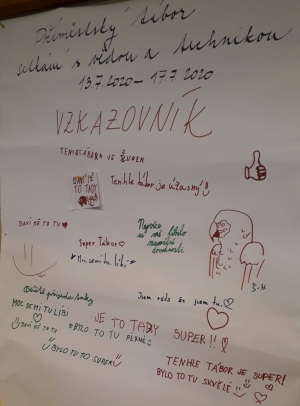 Příměstský tábor
setkání s vědou a technikou
13.7.2020 - 17.7.2020
VZKAZOVNÍK
TENHLE TÁBOR JE SUPER
TO TADY
Tenhle tábor je úžasný!!
BAVÍ MĚ TO TU
Super Tábor
Moc se mi tu líbí
Nejvíce se mi líbilo
Jsem ráda že jsem tu.
MOC SE MI TU LÍBÍ
JE TO TADY SUPER!!
BAVÍ MĚ TO TU
BYLO TO TU PĚKNÉ
BYLO TU TO SUPER
TENHLE TÁBOR JE SUPER!
BYLO TO TU SKVĚLÉ